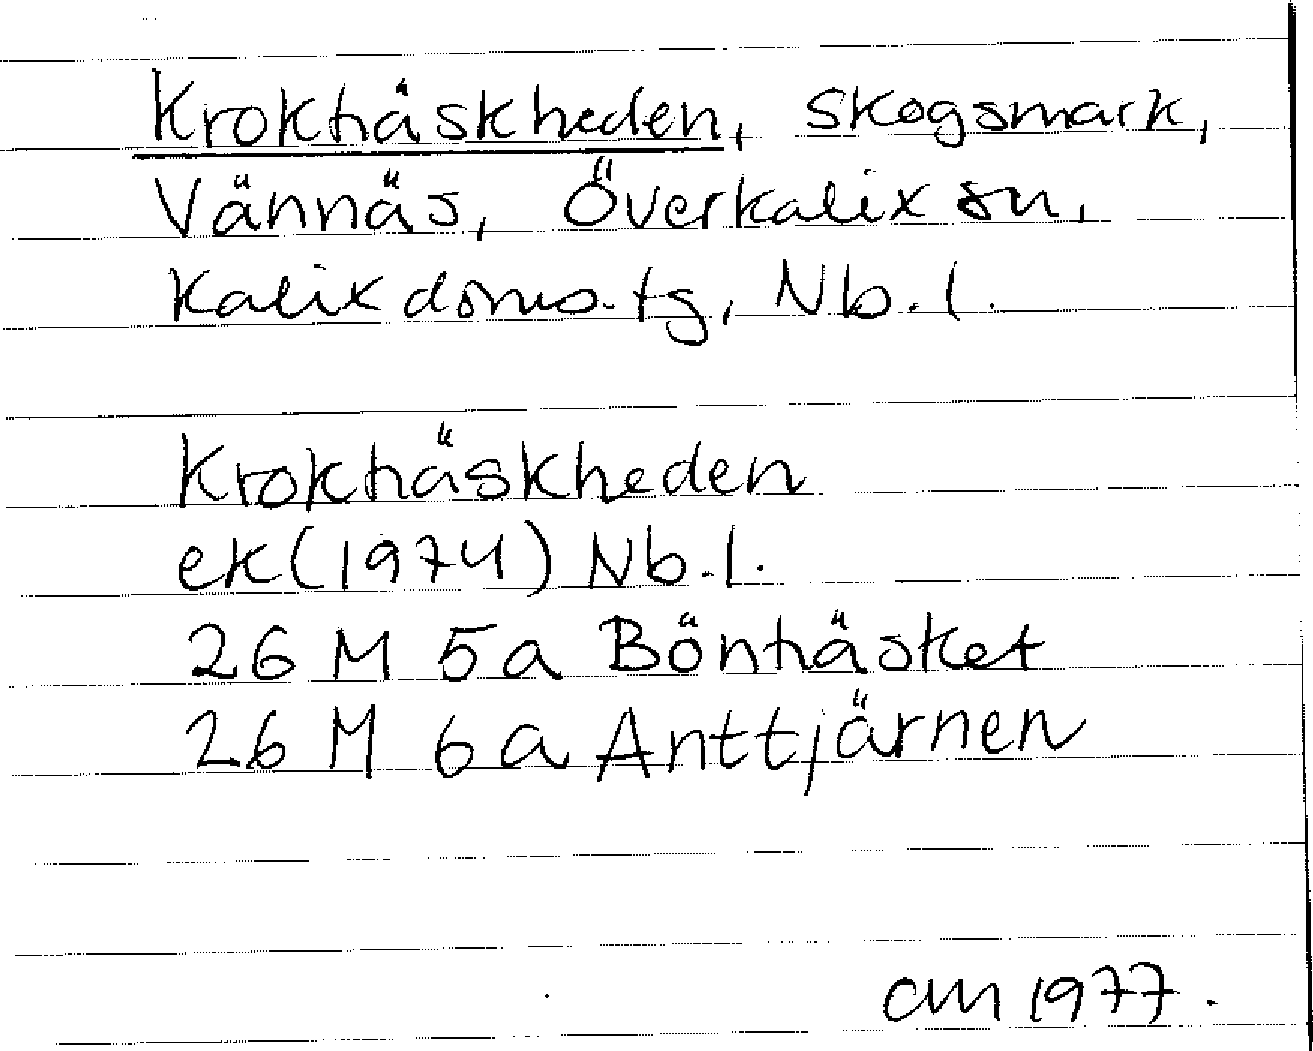 Krokträskheden, skogsmark,
Vännäs, Överkalix sn,
Kalix doms.tg, Nb.l.
Krokträskheden
ek (1974) Nb.l.
26 M 5a Bönträsket
26 M 6a Anttjärnen
am 1977.